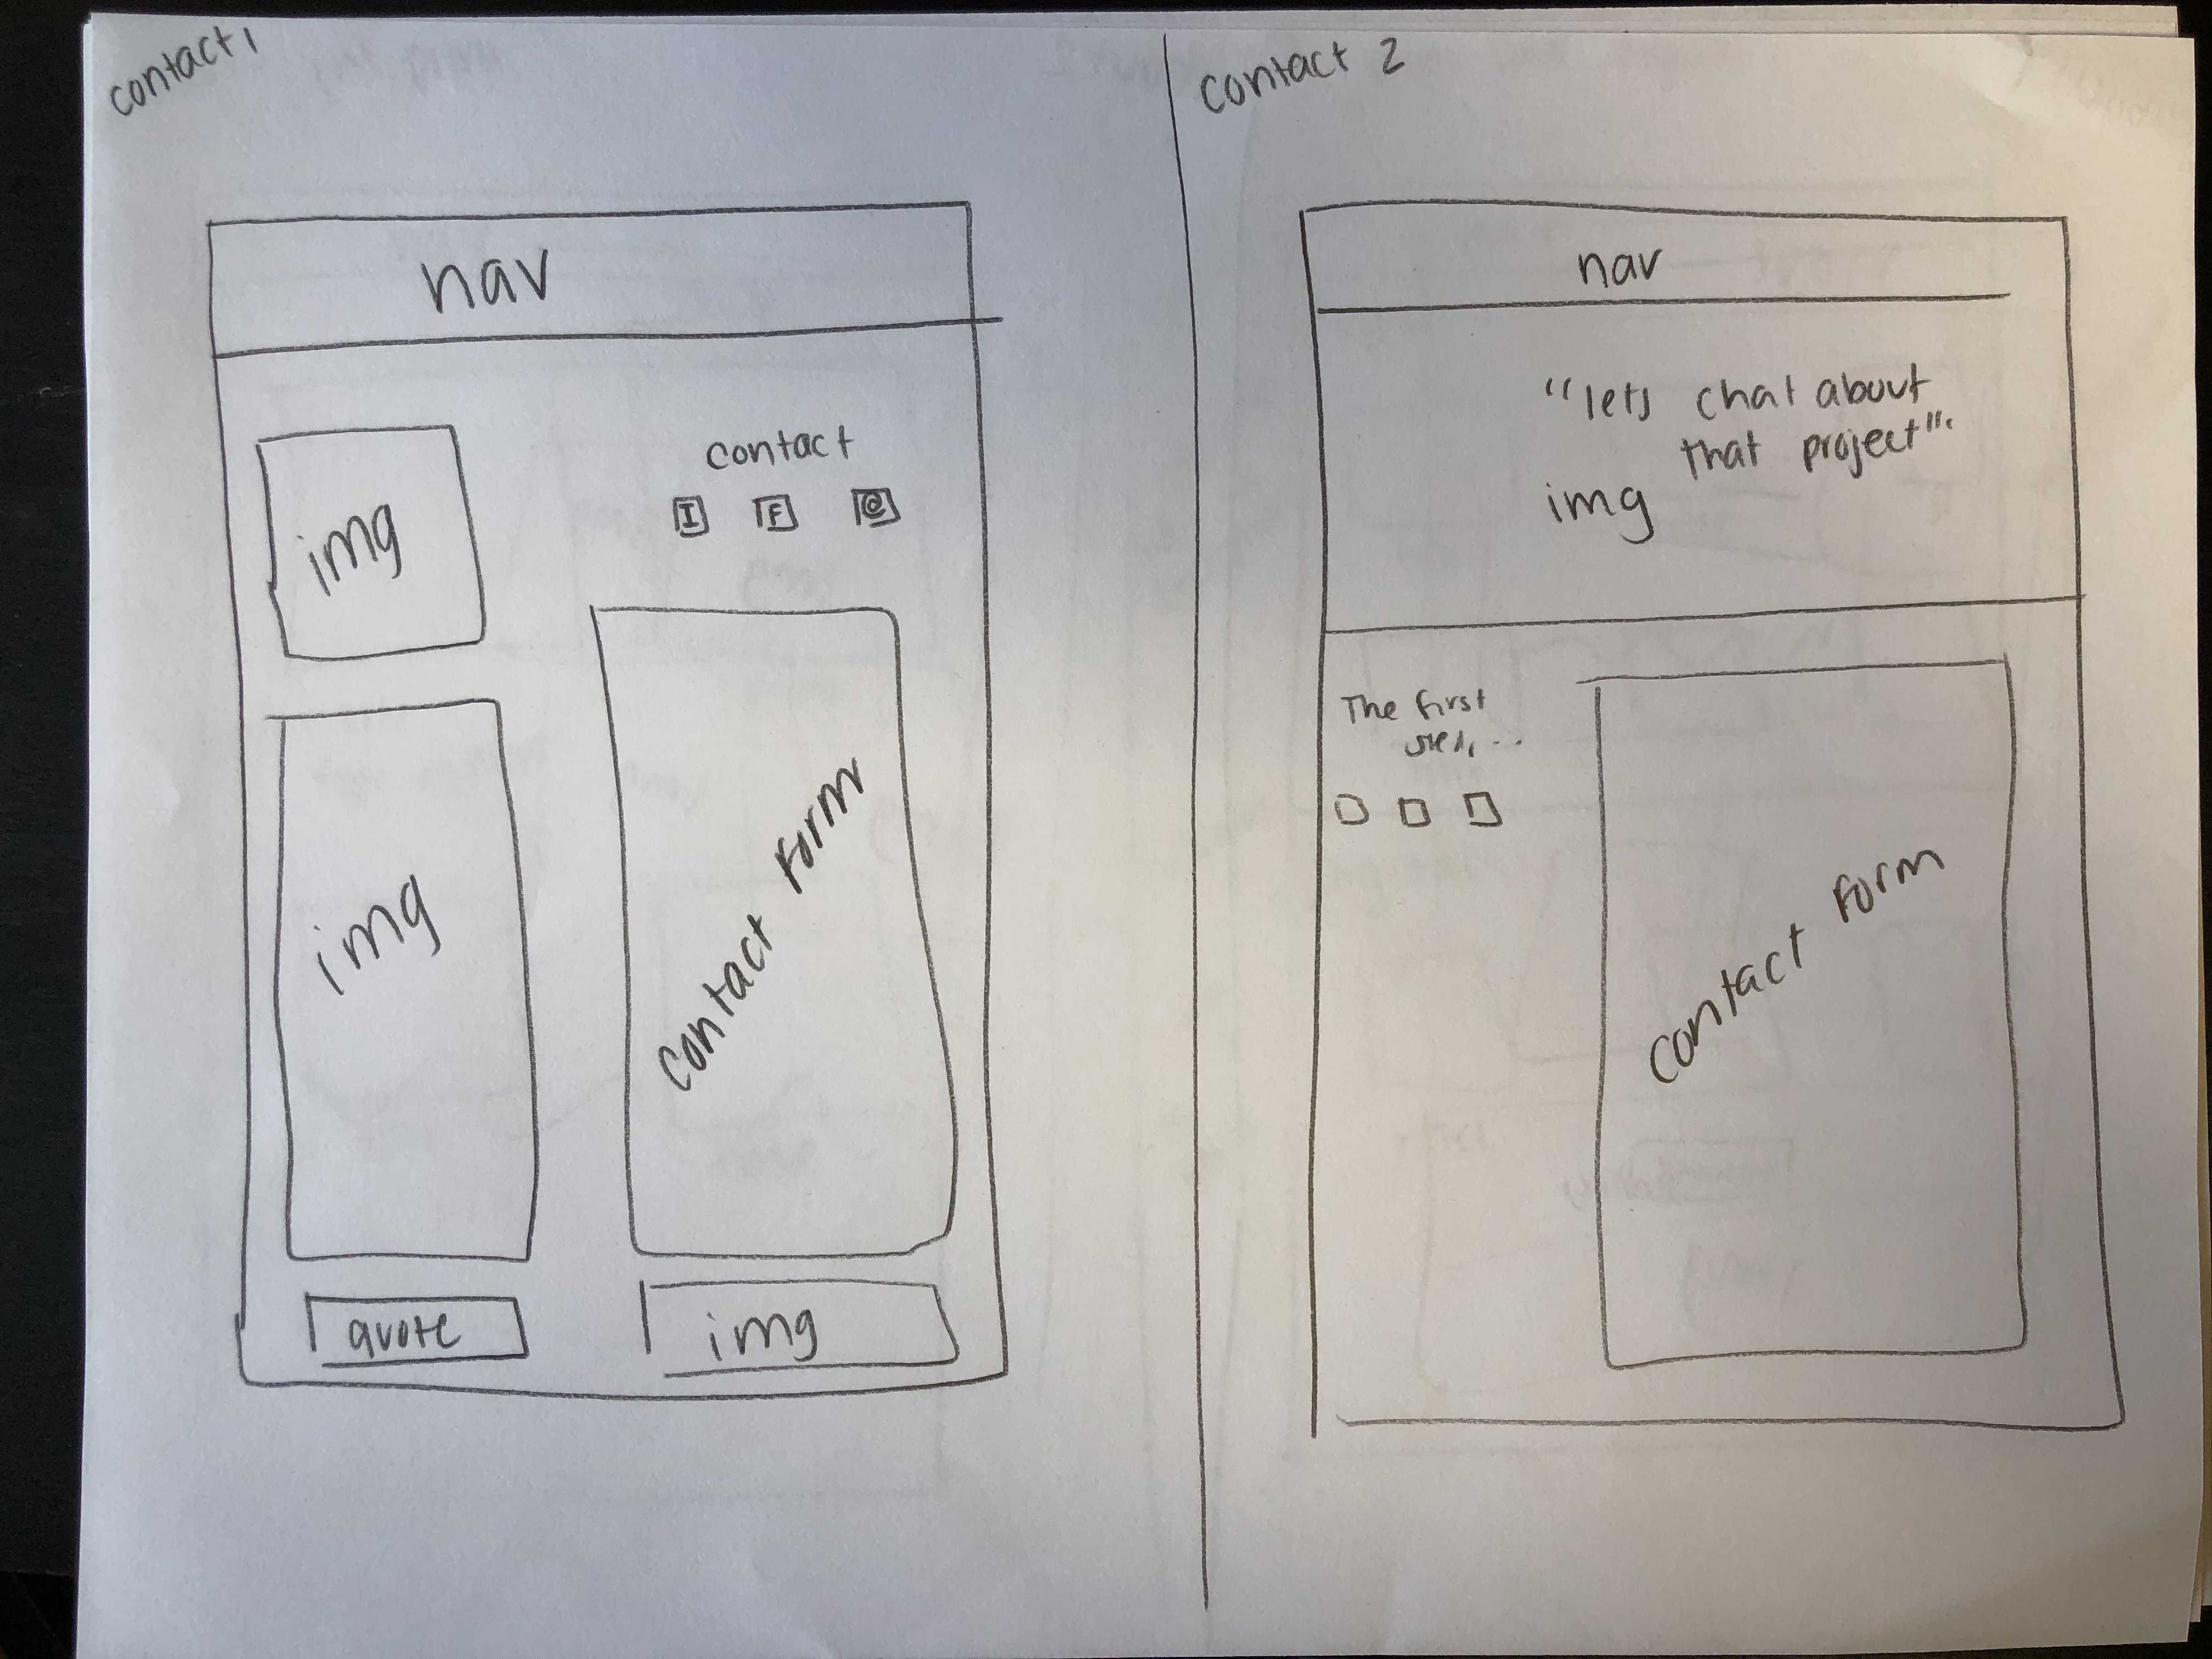 contact 1
nav
img
contact
I F @
img
contact form
quote
img
contact 2
nav
"lets chat about
that project".
img
The first
contact form